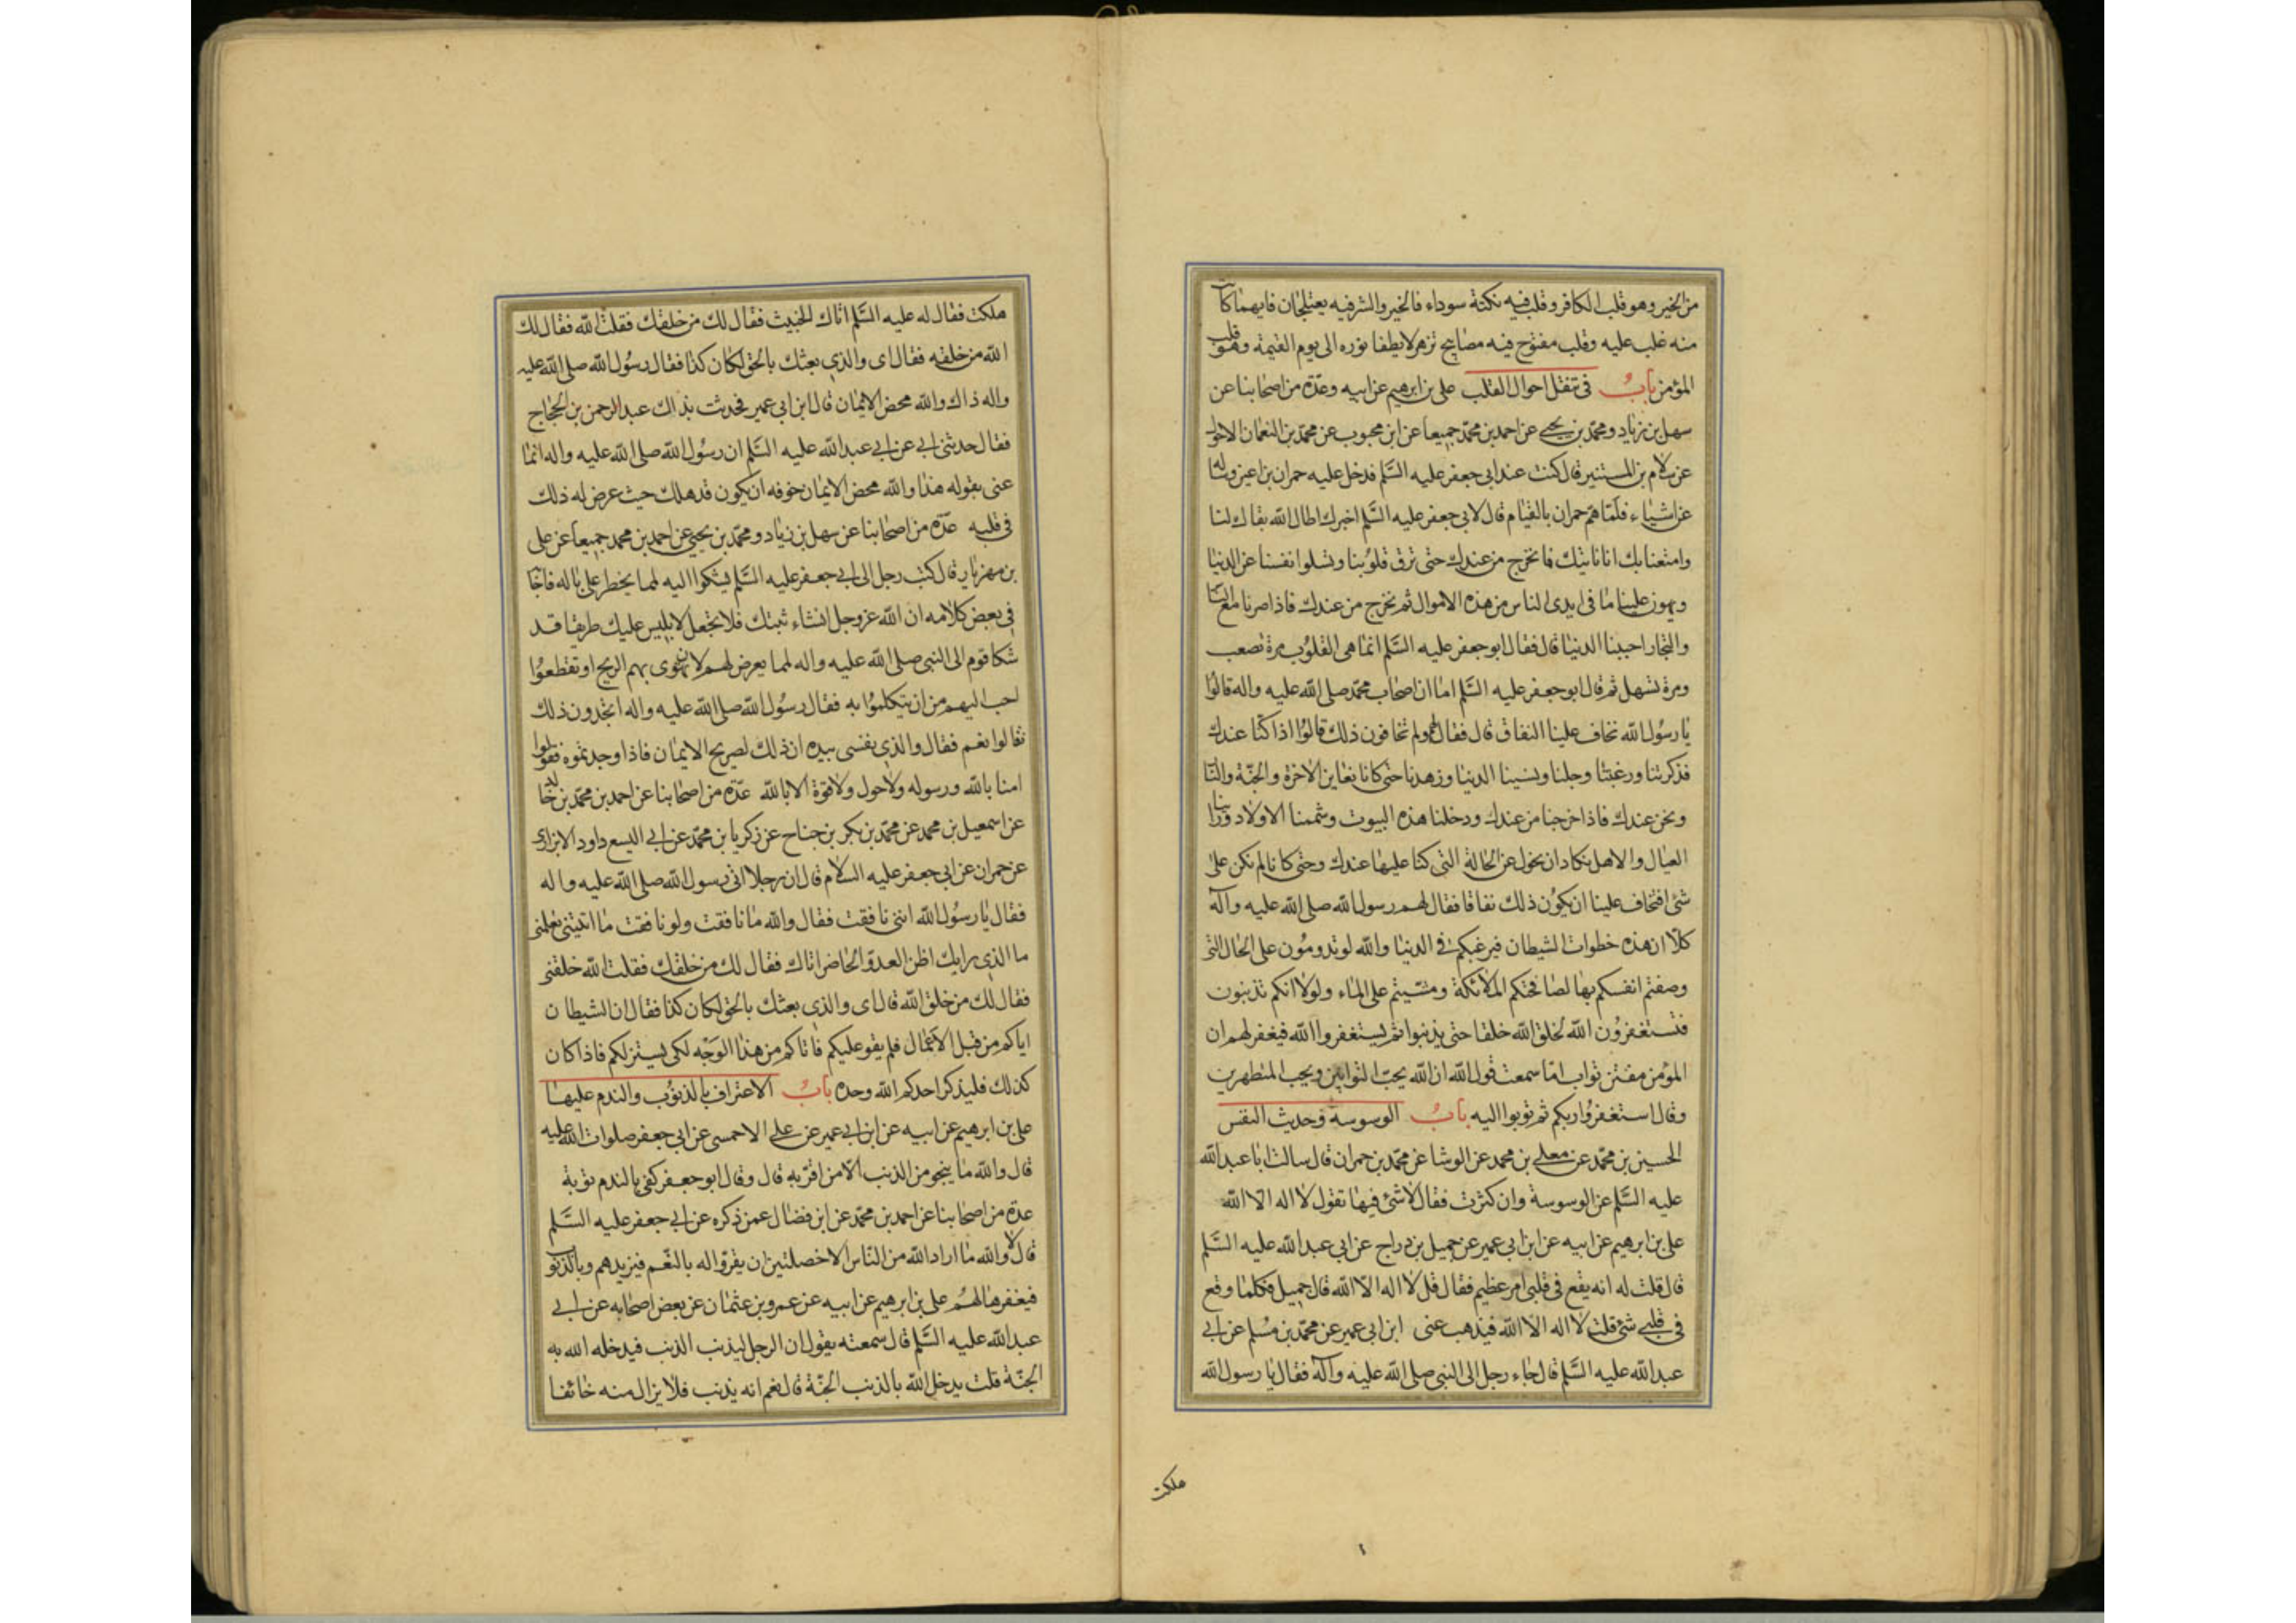 من الخير وهو قلب الكافر وقلب فيه نكتة سوداء فالخير والشر فيه يعتلجان فايهما كانت
منه غلب عليه وقلب مفتوح فيه مصابيح تزهر لا يطفا نوره الى يوم القيمة وهو قلب
المؤمن باب في تنقل احوال القلب على بن ابرهيم عن ابيه وعدة من اصحابنا عن
سهل بن زياد ومحمد بن يحيى عن احمد بن محمد جميعا عن ابن محبوب عن محمد بن النعمان الاحول
عن سلام بن المستنير قال كنت عند ابى جعفر عليه السلم فدخل عليه حمران بن اعين وساله
عن اشياء فلما هم حمران بالقيام قال لابى جعفر عليه السلم اخبرك اطال الله بقاك لنا
وامتعنا بك انا ناتيك فما نخرج من عندك حتى ترق قلوبنا وتسلوا نفسنا عن الدنيا
ويهون علينا ما فى ايدى الناس من هذه الاموال ثم نخرج من عندك فاذا صرنا مع الناس
والتجار احببنا الدنيا قال فقال ابو جعفر عليه السلم انما هى القلوب مرة تصعب
ومرة تسهل ثم قال ابو جعفر عليه السلم اما ان اصحاب محمد صلى الله عليه واله قالوا
يا رسول الله نخاف علينا النفاق قال فقال ولم تخافون ذلك قالوا اذا كنا عندك
فذكرتنا ورغبتنا وجلنا ونسينا الدنيا وزهدنا حتى كانا نعاين الاخرة والجنة والنار
ونحن عندك فاذا خرجنا من عندك ودخلنا هذه البيوت وشممنا الاولاد وراينا
العيال والاهل نكاد ان نحول عن الحالة التى كنا عليها عندك وحتى كانا لم نكن على
شئ افتخاف علينا ان يكون ذلك نفاقا فقال لهم رسول الله صلى الله عليه وآله
كلا ان هذه خطوات الشيطان فيرغبكم فى الدنيا والله لو تدومون على الحال التى
وصفتم انفسكم بها لصافحتكم الملائكة ومشيتم على الماء ولولا انكم تذنبون
فتستغفرون الله لخلق الله خلقا حتى يذنبوا ثم يستغفروا الله فيغفر لهم ان
المؤمن مفتن تواب اما سمعت قول الله ان الله يحب التوابين ويحب المتطهرين
وقال استغفروا ربكم ثم توبوا اليه باب الوسوسة وحديث النفس
الحسين بن محمد عن معلى بن محمد عن الوشا عن محمد بن حمران قال سالت ابا عبد الله
عليه السلم عن الوسوسة وان كثرت فقال لا شئ فيها تقول لا اله الا الله
على بن ابرهيم عن ابيه عن ابن ابى عمير عن جميل بن دراج عن ابى عبد الله عليه السلم
قال قلت له انه يقع فى قلبى امر عظيم فقال قل لا اله الا الله قال جميل فكلما وقع
فى قلبى شئ قلت لا اله الا الله فيذهب عنى ابن ابى عمير عن محمد بن مسلم عن ابى
عبد الله عليه السلم قال جاء رجل الى النبى صلى الله عليه وآله فقال يا رسول الله
هلكت
هلكت فقال له عليه السلم اتاك الخبيث فقال لك من خلقك فقلت الله فقال لك
الله من خلقه فقال اى والذى بعثك بالحق لكان كذا فقال رسول الله صلى الله عليه
واله ذاك والله محض الايمان قال ابن ابى عمير فحدثت بذلك عبد الرحمن بن الحجاج
فقال حدثنى ابى عن ابى عبد الله عليه السلم ان رسول الله صلى الله عليه واله انما
عنى بقوله هذا والله محض الايمان خوفه ان يكون قد هلك حيث عرض له ذلك
فى قلبه عدة من اصحابنا عن سهل بن زياد ومحمد بن يحيى عن احمد بن محمد جميعا عن على
بن مهزيار قال كتب رجل الى ابى جعفر عليه السلم يشكوا اليه لمما يخطر على باله فاجابه
فى بعض كلامه ان الله عز وجل انشاء ثبتك فلا تجعل لابليس عليك طريقا قد
شكا قوم الى النبى صلى الله عليه واله لمما يعرض لهم لان تهوى بهم الريح او تقطعوا
احب اليهم من ان يتكلموا به فقال رسول الله صلى الله عليه واله اتجدون ذلك
فقالوا نعم فقال والذى نفسى بيده ان ذلك لصريح الايمان فاذا وجدتموه فقولوا
امنا بالله ورسوله ولا حول ولا قوة الا بالله عدة من اصحابنا عن احمد بن محمد بن خالد
عن اسمعيل بن محمد عن محمد بن بكر بن جناح عن زكريا بن محمد عن ابى اليسع داود الابزارى
عن حمران عن ابى جعفر عليه السلام قال ان رجلا اتى رسول الله صلى الله عليه واله
فقال يا رسول الله اننى نافقت فقال والله ما نافقت ولو نافقت ما اتيتنى تعلمنى
ما الذى رابك اظن العدو الحاضر اتاك فقال لك من خلقك فقلت الله خلقنى
فقال لك من خلق الله قال اى والذى بعثك بالحق لكان كذا فقال ان الشيطان
اياكم من قبل الاعمال فلم يقو عليكم فاتاكم من هذا الوجه لكى يستزلكم فاذا كان
كذلك فليذكر احدكم الله وحده باب الاعتراف بالذنوب والندم عليها
على بن ابرهيم عن ابيه عن ابن ابى عمير عن على الاحمسى عن ابى جعفر صلوات الله عليه
قال والله ما ينجو من الذنب الا من اقر به قال وقال ابو جعفر كفى بالندم توبة
عدة من اصحابنا عن احمد بن محمد عن ابن فضال عمن ذكره عن ابى جعفر عليه السلم
قال لا والله ما اراد الله من الناس الا خصلتين ان يقروا له بالنعم فيزيدهم وبالذنوب
فيغفرها لهم على بن ابرهيم عن ابيه عن عمرو بن عثمان عن بعض اصحابه عن ابى
عبد الله عليه السلم قال سمعته يقول ان الرجل ليذنب الذنب فيدخله الله به
الجنة قلت يدخل الله بالذنب الجنة قال نعم انه يذنب فلا يزال منه خائفا